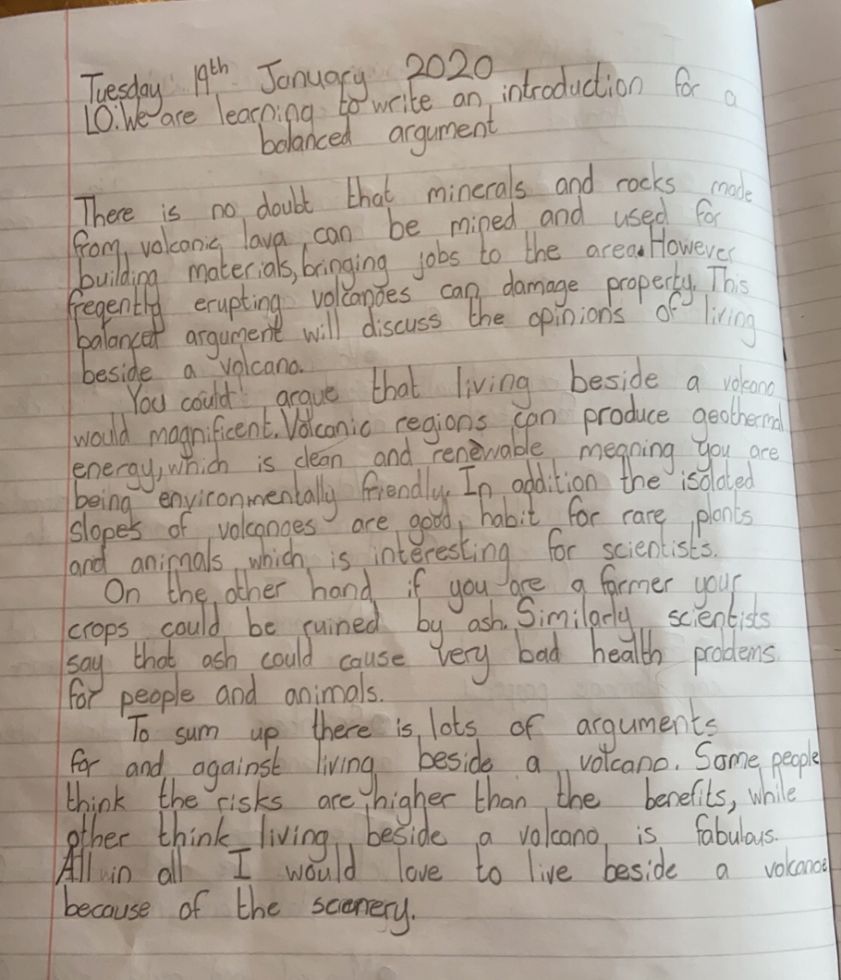 Tuesday 19th January 2020
LO: We are learning to write an introduction for a
balanced argument
There is no doubt that minerals and rocks made
from volcanic lava, can be mined and used for
building materials, bringing jobs to the area. However
freqently erupting volcanoes can damage property. This
balanced argument will discuss the opinions of living
beside a volcano.
You could argue that living beside a volcano
would magnificent. Volcanic regions can produce geothermal
energy, which is clean and renewable, meaning you are
being environmentally friendly. In addition the isolated
slopes of volcanoes are good habit for rare plants
and animals, which is interesting for scientists.
On the other hand, if you are a farmer your
crops could be ruined by ash. Similarly, scientists
say that ash could cause very bad health problems
for people and animals.
To sum up there is lots of arguments
for and against living beside a volcano. Some people
think the risks are higher than the benefits, while
other think living beside a volcano is fabulous.
All in all I would love to live beside a volcanoe
because of the scenery.